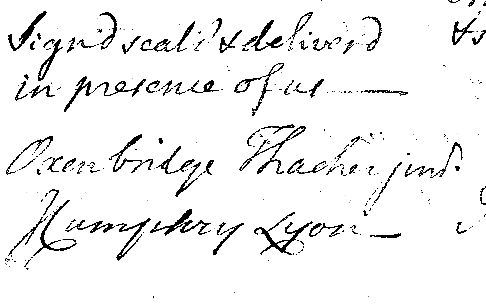 Sign'd seal'd & deliver'd
in presence of us
Oxenbridge Thacher junr.
Humphry Lyon